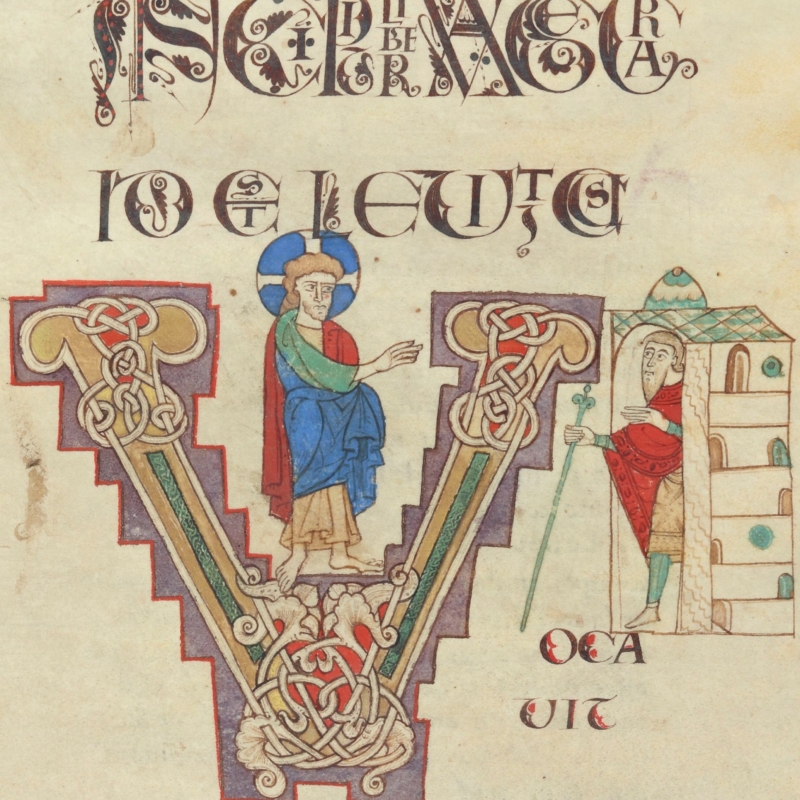 INCIPIT LIBER VAIECRA
ID EST LEUITICUS
VOCA
UIT